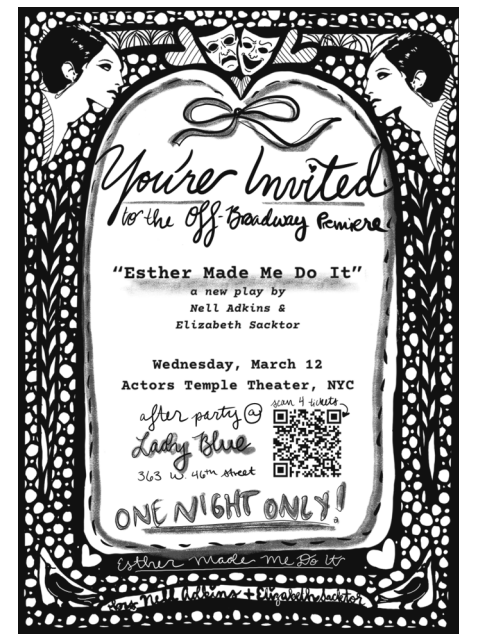 You're Invited
to the Off-Broadway Premiere
“Esther Made Me Do It”
a new play by
Nell Adkins &
Elizabeth Sacktor
Wednesday, March 12
Actors Temple Theater, NYC
scan 4 tickets
after party @
Lady Blue
363 W. 46th street
ONE NIGHT ONLY!
Esther Made Me Do It
Nell Adkins + Elizabeth Sacktor